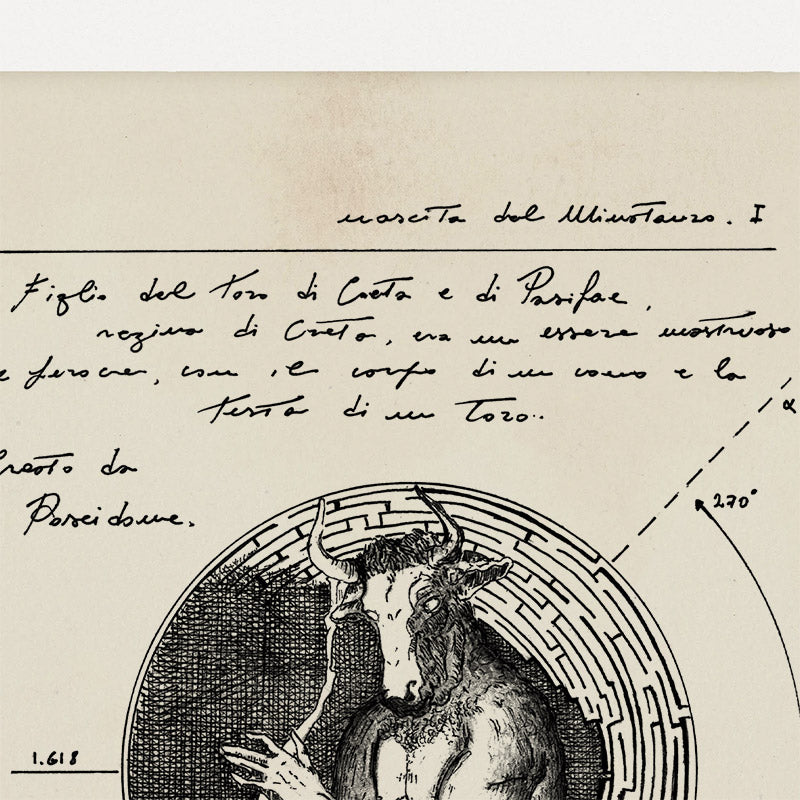 nascita dal Minotauro. I
Figlio del toro di Creta e di Pasifae,
regina di Creta, era un essere mostruoso
e feroce, con il corpo di un uomo e la
testa di un toro..
Creato da
Poseidone.
α
270°
1.618